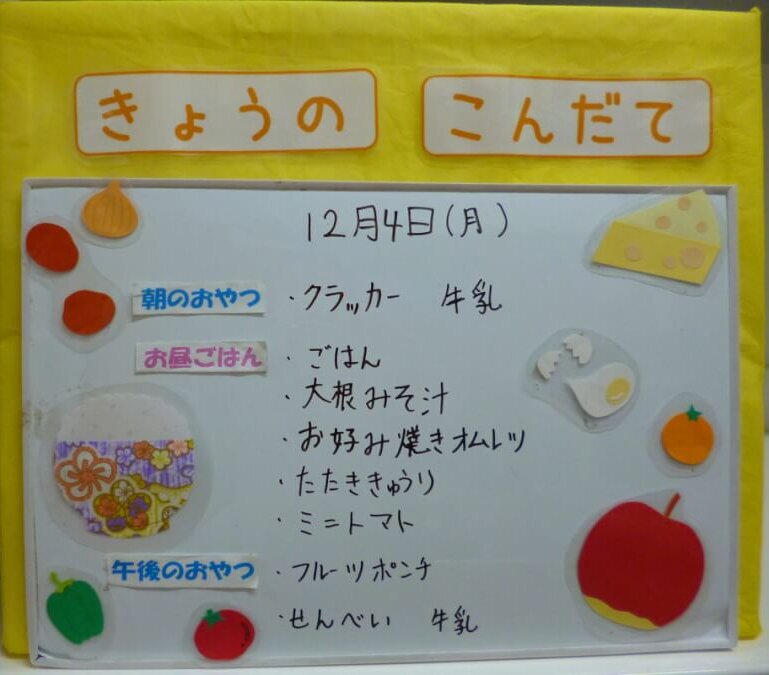 きょうの こんだて
12月4日(月)
朝のおやつ ・クラッカー 牛乳
お昼ごはん ・ごはん
・大根みそ汁
・お好み焼きオムレツ
・たたききゅうり
・ミニトマト
午後のおやつ ・フルーツポンチ
・せんべい 牛乳